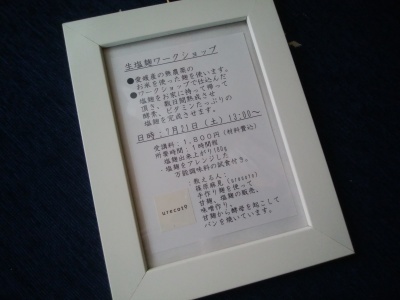 生塩麹ワークショップ
●愛媛産の無農薬の
お米を使った麹を使います。
●ワークショップで仕込んだ
塩麹をお家に持って帰って
頂き、数日間熟成させ
酵素、ビタミンたっぷりの
塩麹を完成させます。
日時:7月21日(土)13:00〜
受講料:1,800円(材料費込)
所要時間:1時間程
塩麹出来上がり180g
塩麹をアレンジした
万能調味料の試食付き。
教える人:
篠原麻見(urecota)
手作り麹を使って
甘麹、塩麹の販売、
味噌作り。
甘麹から酵母を起こして
パンを焼いています。
urecota